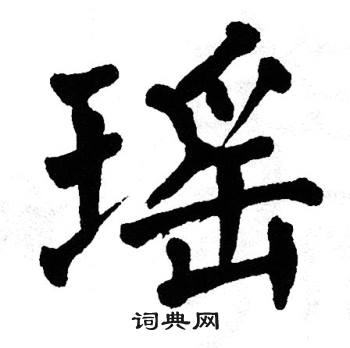 瑶
词典网